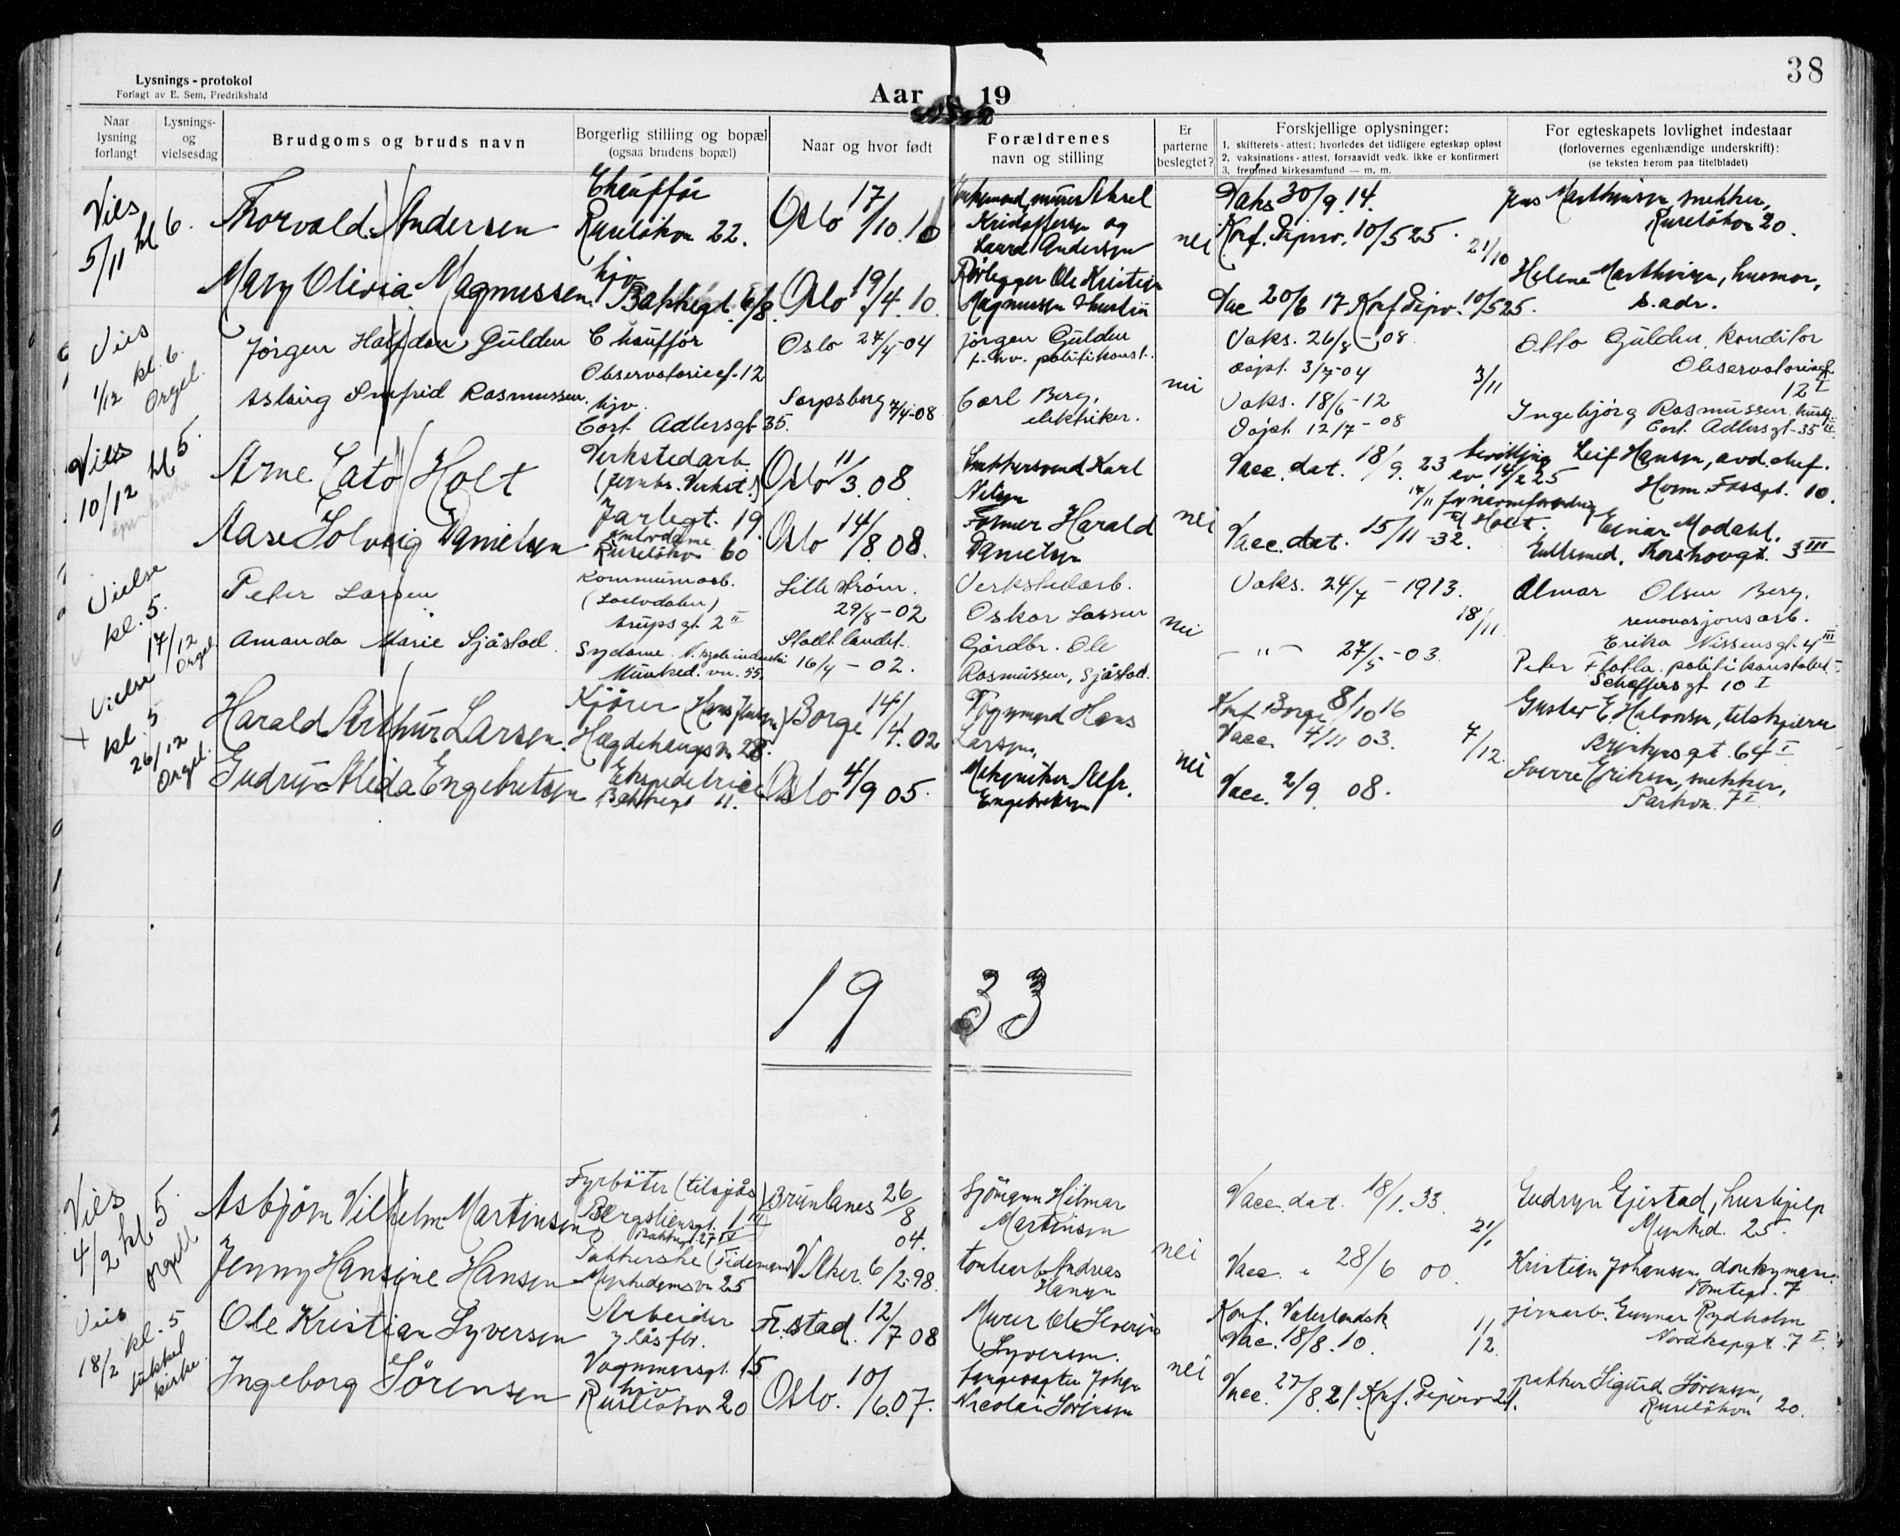 38
Lysnings-protokol
Forlagt av E. Sem, Fredrikshald
Aar 19
Naar lysning forlangt
Lysnings- og vielsesdag
Brudgoms og bruds navn
Borgerlig stilling og bopæl (ogsaa brudens bopæl)
Naar og hvor født
Forældrenes navn og stilling
Er parterne beslegtet?
Forskjellige oplysninger:
1. skifterets-attest; hvorledes det tidligere egteskap opløst
2. vaksinations-attest, forsaavidt vedk. ikke er konfirmert
3. fremmed kirkesamfund — m. m.
For egteskapets lovlighet indestaar
(forlovernes egenhændige underskrift):
(se teksten herom paa titelbladet)
Vies 5/11 kl 6.
Thorvald Andersen
Chaufför
Ruseløkvn 22.
Oslo 17/10.10
Kristoffersen og
Laura Andersen
nei
Vaks 30/9.14.
Konf. Piperv. 10/5 25.
21/10
Jens Marthinsen, snekker,
Ruseløkvn 20.
Mary Olivia Magnussen
hjv.
Bakkegt. 6/8.
Oslo 19/4.10.
Rørlegger Ole Kristian
Magnussen & hustru
Vac 20/6 17 Konf Piperv. 10/5 25.
Helene Marthinsen, husmor,
s. adr.
Vies 1/12 kl. 6. Orgel.
Jørgen Halfdan Gulden
Chauffør
Observatoriegt. 12
Oslo 27/4-04
Jørgen Gulden
f. hv. politikonst.
nei
Vaks. 26/8-08
Døpt. 3/7-04
3/11
Otto Gulden, konditor
Observatoriegt.
12 I
Aslaug Synfrid Rasmussen.
hjv.
Cort Adlersgt 35.
Sarpsborg 7/4-08
Carl Berg,
elektriker.
Vaks. 18/6-12
Døpt. 12/7-08
Ingebjørg Rasmussen. husm.
Cort Adlersgt-35
Vies 10/12 kl 5.
Arne Cato Holt
Verkstedarb.
(Jernbs. Verkst.)
Jarlegt. 19.
Oslo 11/3.08.
Snekkersvend Karl
Nilsen
nei
Vacc. dat. 18/9. 23
bevilling
av 14/2 25
17/11 for navneforandring
til Holt.
Leif Hansen, avd. chef.
Herm. Fossgt. 10.
Aase Solveig Danielsen
Ruseløkvn 60
Oslo 14/8 08.
Former Harald
Danielsen
Vacc. dat. 15/11-32.
Einar Modahl.
Gullsmed, Korshavgt. 3 III
Vielse kl. 5. 17/12 Orgel.
Peter Larsen
Kommunearb.
(Loelvdalen)
Arupsgt 2 II
Lille strøm.
29/8-02
Verkstedarb.
Oskar Larsen
nei
Vaks. 24/7-1913.
18/11
Almar Olsen Berg,
renovasjonsarb.
Erika Nissensgt. 4 III
Amanda Marie Sjåstad
Sydame.
Munked. vn. 55.
Stadtlandet.
16/4-02.
Gårdbr. Ole
Rasmussen, Sjåstad.
— " — 27/5-03
Peter Flatla. politikonstabel
Schæffersgt 10 I
Vielse kl. 5 26/12 Orgel.
Harald Arthur Larsen.
Kjører
Hægdehaugsvn 28.
Borge 14/4.02
Larsen.
nei
Konf Borge 8/10 16
Vacc. 4/11 03.
7/12.
Gustav E Halvorsen,
64 I
Gudrun Alida Engebretsen
Ekspeditrice
Bakkegt 11.
Oslo 4/9 05.
Mekaniker Alfr.
Engebretsen
Vacc. 2/9 08.
Sverre Eriksen, snekker,
Parkvn. 7 I
1933
Vies 4/2 kl 5. orgell
Asbjørn Vilhelm Martinsen
Fyrbøter (tilsjøs)
Bergsliensgt. 1 II
Bakkegt. 27 IV
Brunlanes 26/8 04.
Sjömann Hilmar
Martinsen
nei
Vacc. dat. 18/1.33.
21/1
Gudrun Gjestad, hushjelp
Munked. 25.
Jenny Hansine Hansen
Pakkerske (Tidemans)
Munkedamsvn 25
V. Aker. 6/2.98.
Tomtearb Andreas
Hansen
Vacc. " 28/6 00.
Kristian Johansen donkeyman.
Tomtegt. 7
Vies 18/2 kl. 5 Lukket kirke.
Ole Kristian Syversen
Arbeider
Vognmansgt. 15
Fr.stad. 12/7 08
Murer Ole Severin
Syversen.
nei
Konf. Vaterlandsk
Vac. 18/8.10.
11/2.
jernarb. Gunnar Rydholm
Nordkapgt. 7 I
Ingeborg Sørensen
hjv.
Ruseløkvn 20
Oslo. 10/6.07.
Nicolai Sørensen
Vacc. 27/8.21. Konf. Piperv 21.
pakker Sigurd Sørensen,
Ruseløkvn 20.